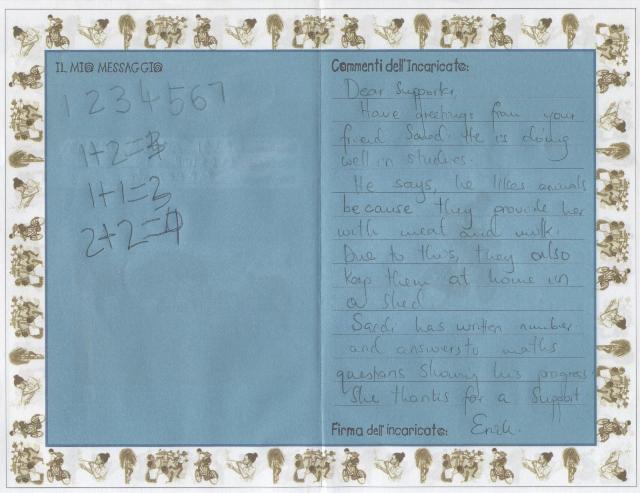 IL MIO MESSAGGIO
1 2 3 4 5 6 7
1+2=3
1+1=3
2+2=4
Commenti dell'Incaricato:
Dear Supporter,
Have greetings from your
friend Saadi. He is doing
well in studies.
He says, he likes animals
because they provide her
with meat and milk.
Due to this, they also
keep them at home in
a shed
Saadi has written number
and answers to maths
questions showing his progress.
She thanks for a support
Firma dell'incaricato: Erick.